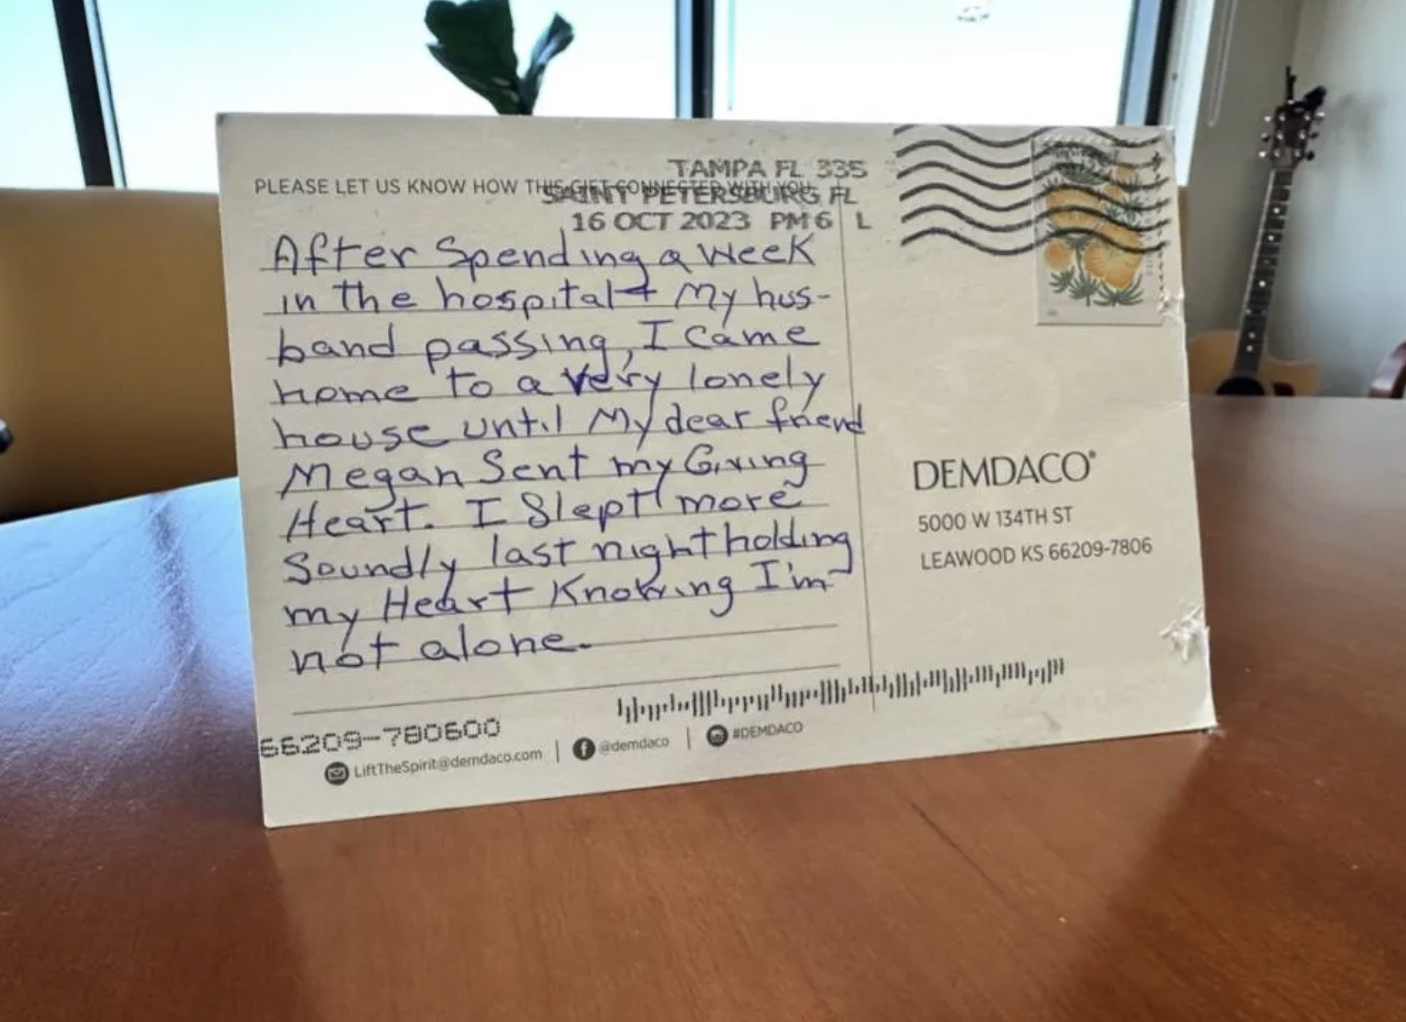 TAMPA FL 335
PLEASE LET US KNOW HOW THIS GIFT CONNECTED WITH YOU.
SAINT PETERSBURG FL
16 OCT 2023 PM 6 L
After Spending a week
in the hospital + My hus-
band passing, I came
home to a very lonely
house until My dear friend
Megan Sent my Giving
Heart. I Slept more
Soundly last night holding
my Heart Knowing I'm
not alone.
DEMDACO®
5000 W 134TH ST
LEAWOOD KS 66209-7806
66209-780600
LiftTheSpirit@demdaco.com | @demdaco | #DEMDACO